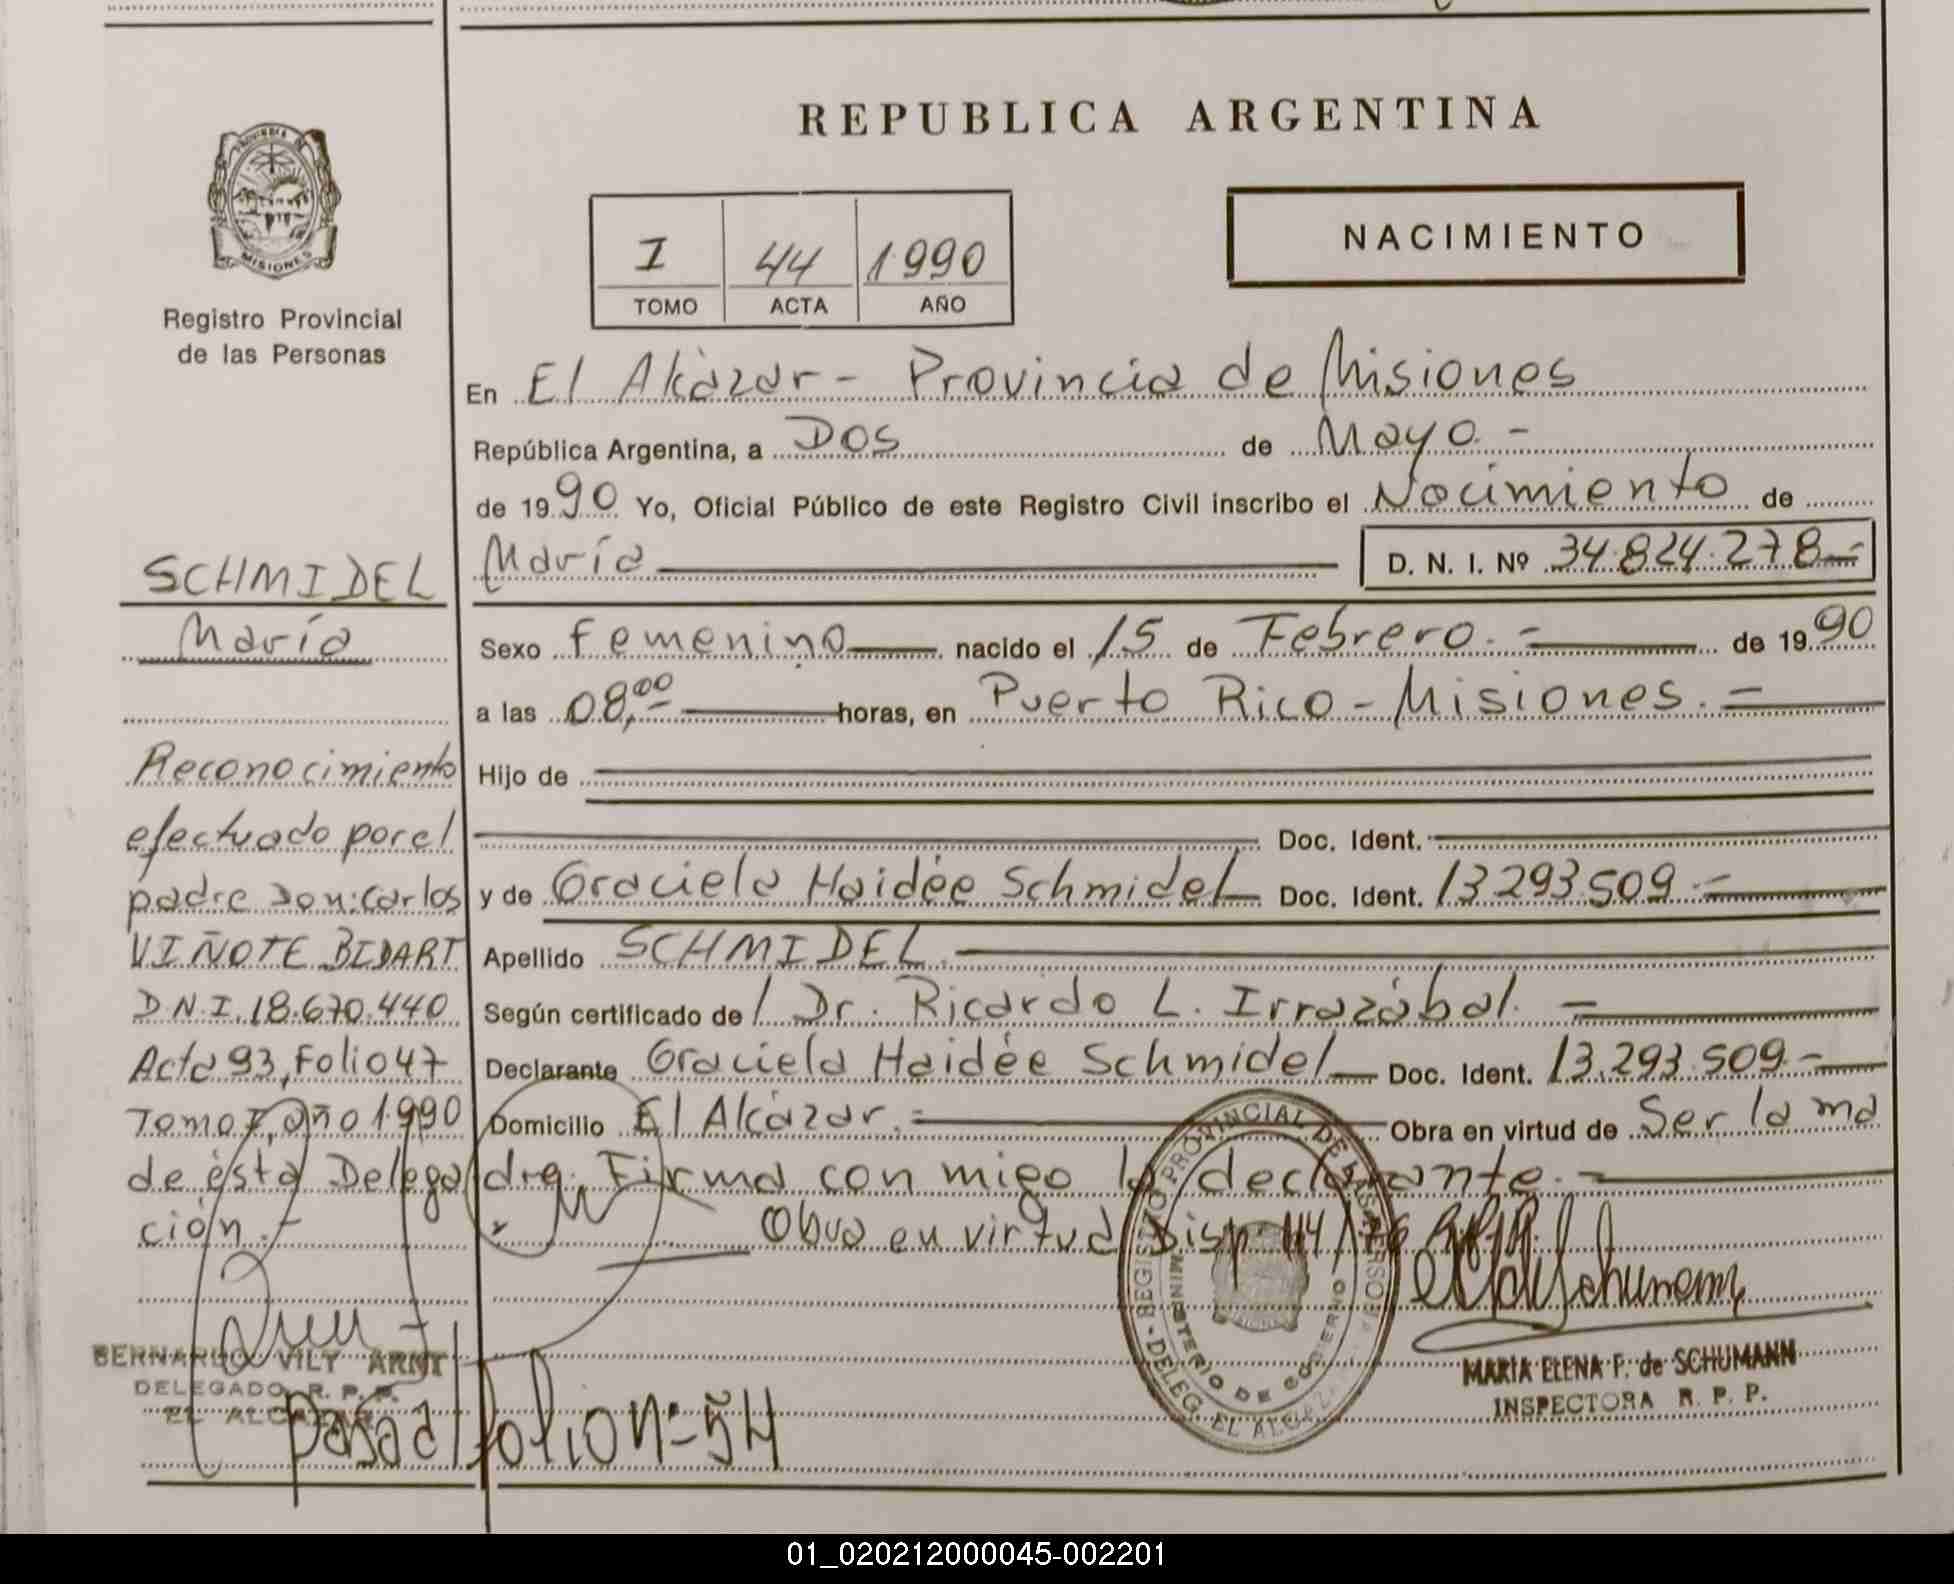 REPUBLICA ARGENTINA
MISIONES
Registro Provincial
de las Personas
NACIMIENTO
I 44 1990
TOMO ACTA AÑO
En El Alcázar - Provincia de Misiones
República Argentina, a Dos de Mayo.-
de 1990 Yo, Oficial Público de este Registro Civil inscribo el Nacimiento de
María D. N. I. Nº 34.824.278.-
Sexo Femenino nacido el 15 de Febrero.- de 1990
a las 08,00 horas, en Puerto Rico - Misiones.-
Hijo de
Doc. Ident.
y de Graciela Haidée Schmidel Doc. Ident. 13.293.509.-
Apellido SCHMIDEL.
Según certificado de l Dr. Ricardo L. Irrazábal.-
Declarante Graciela Haidée Schmidel Doc. Ident. 13.293.509.-
Domicilio El Alcázar.- Obra en virtud de Ser la ma
dre. Firma con migo la declarante.-
Obra en virtud Disp. 114/76 R.P.P.
SCHMIDEL
María
Reconocimiento
efectuado por el
padre Don: Carlos
VIÑOTE BIDART
D.N.I. 18.670.440
Acta 93, Folio 47
Tomo I, año 1990
de ésta Delega
ción.-
BERNARDO VILY ARNT
DELEGADO R. P. P.
EL ALCAZAR
Pasa al folio Nº 54
REGISTRO PROVINCIAL DE LAS PERSONAS
MINISTERIO DE GOBIERNO
DELEG. EL ALCAZAR
MARIA ELENA F. de SCHUMANN
INSPECTORA R. P. P.
01_020212000045-002201